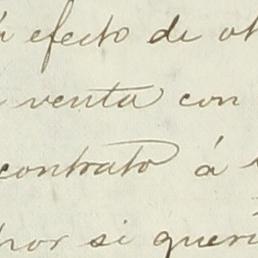 á efecto de ot
venta con
contrato á
por si queri